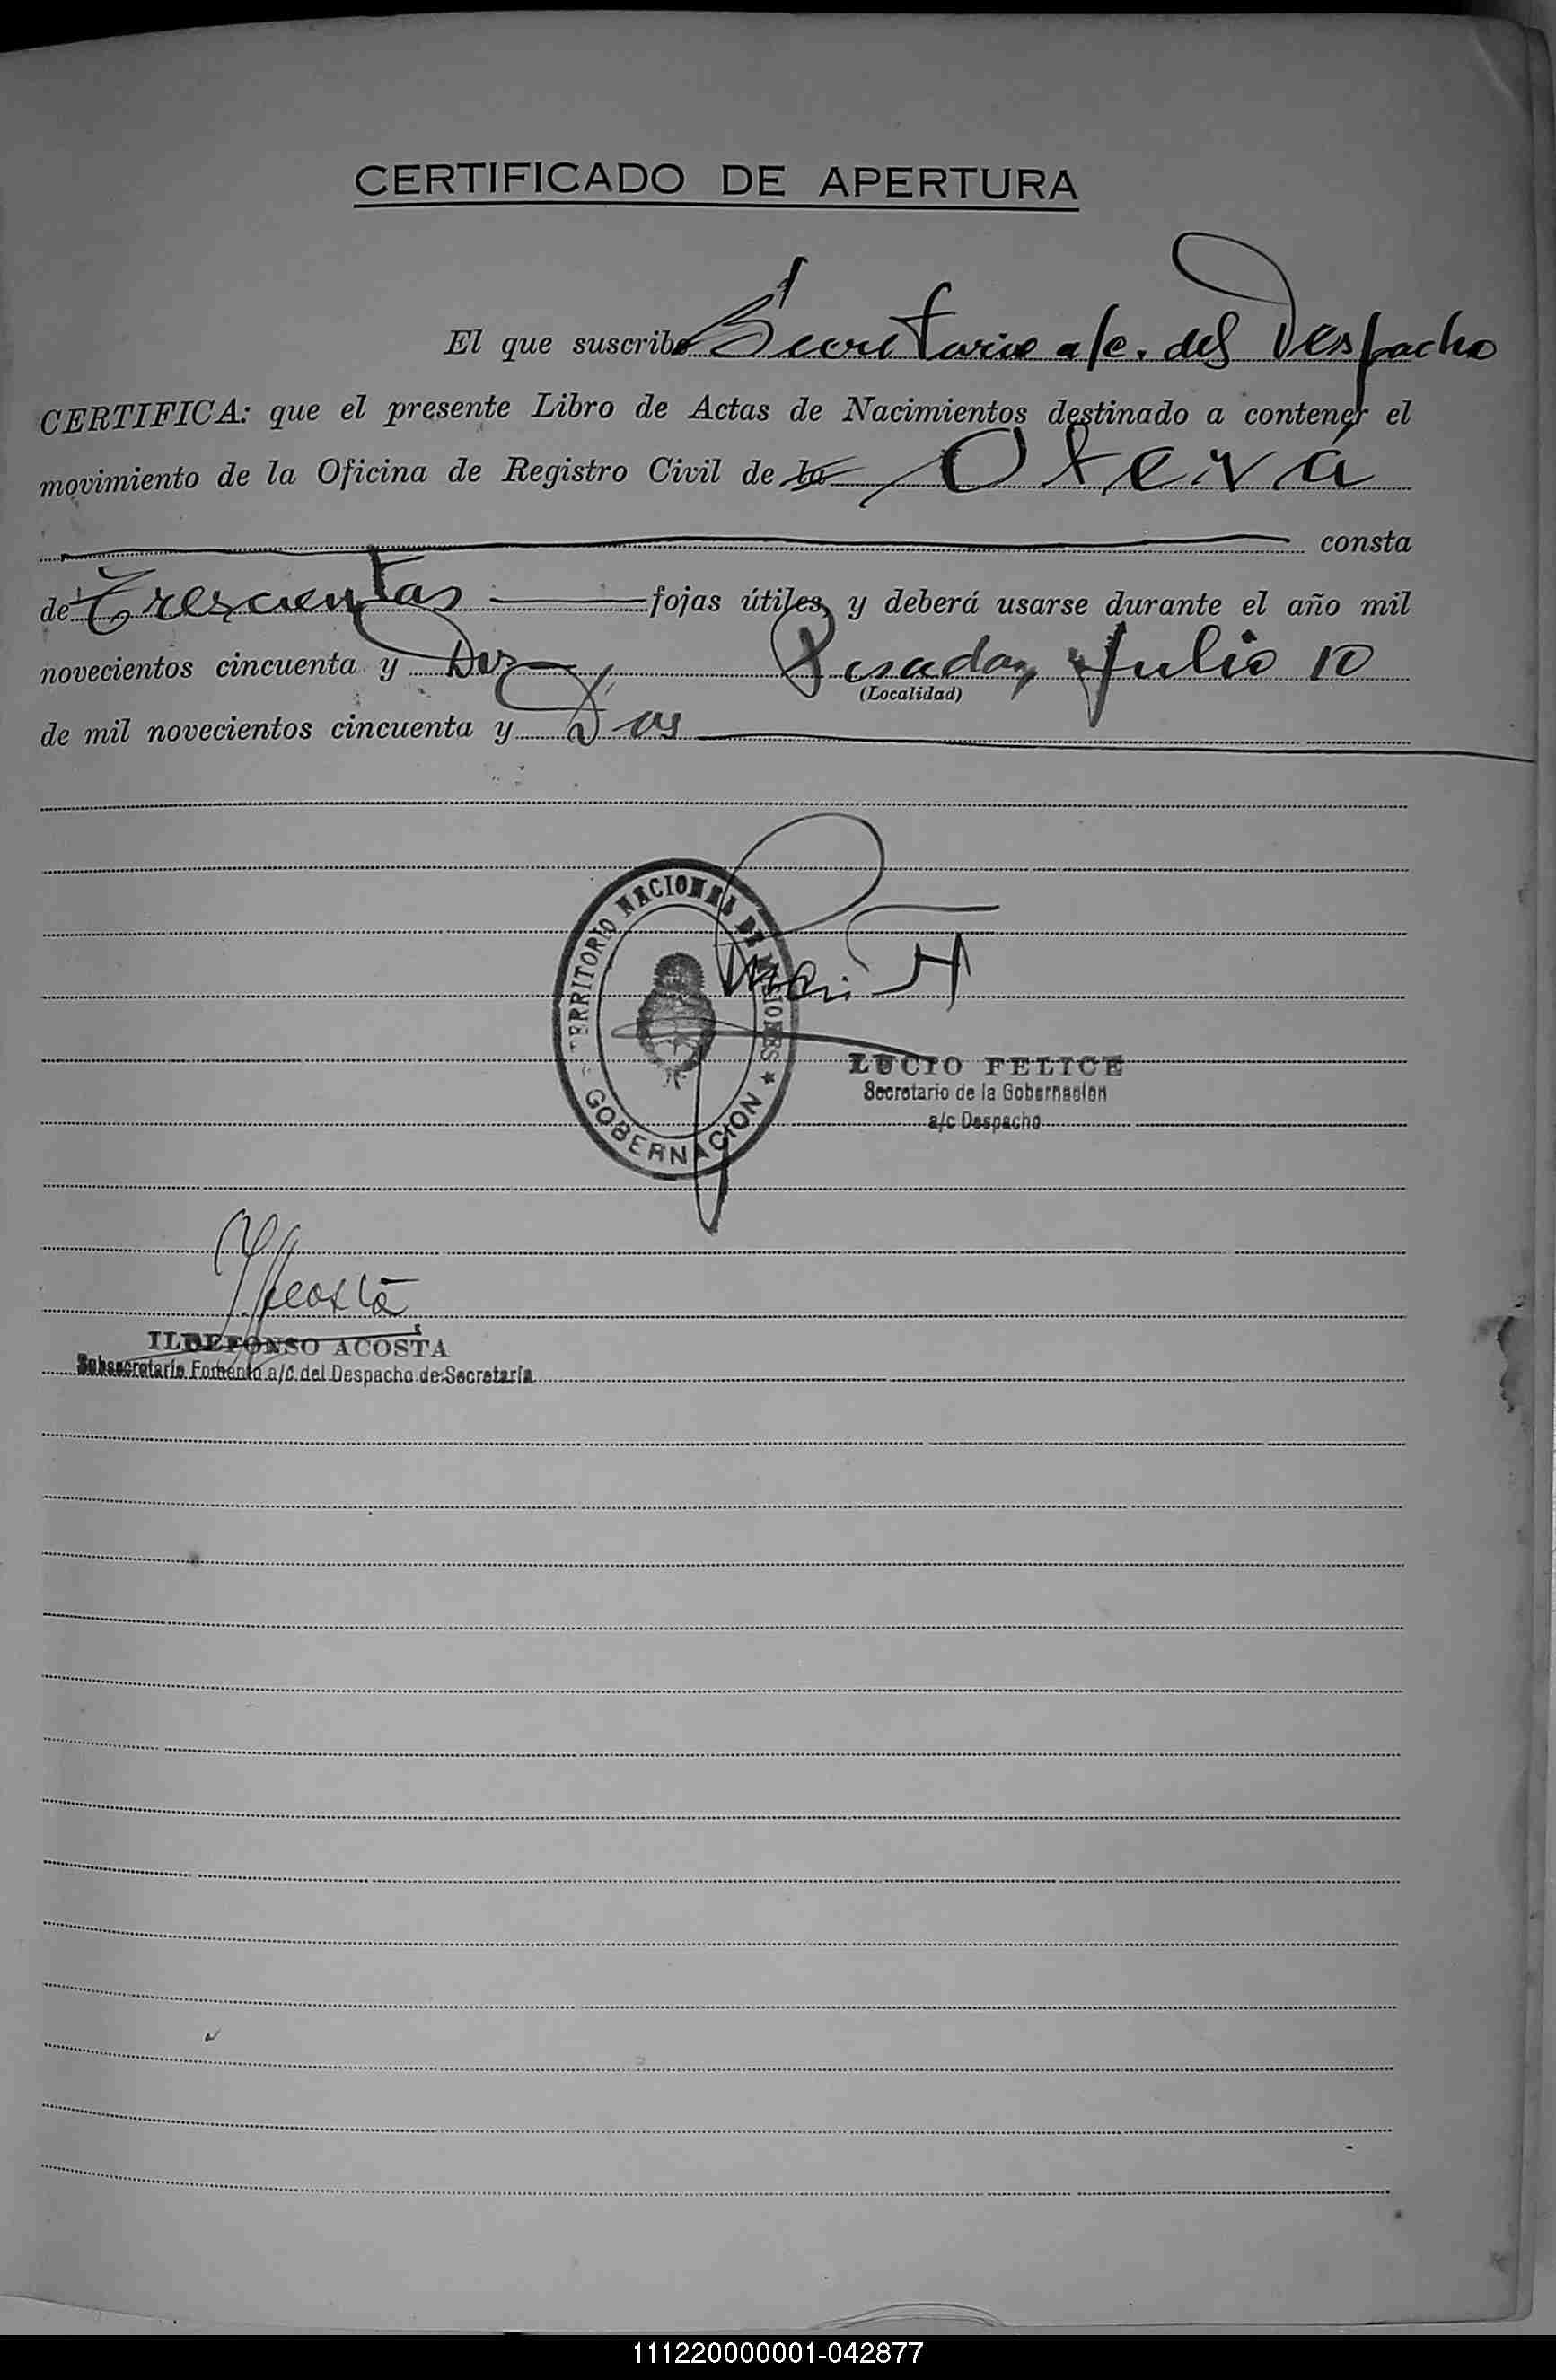 CERTIFICADO DE APERTURA
El que suscribe Secretario a/c. del Despacho
CERTIFICA: que el presente Libro de Actas de Nacimientos destinado a contener el
movimiento de la Oficina de Registro Civil de la Oberá
consta
de Trescientas fojas útiles, y deberá usarse durante el año mil
novecientos cincuenta y Dos Posadas, Julio 10
(Localidad)
de mil novecientos cincuenta y Dos
TERRITORIO NACIONAL DE MISIONES
GOBERNACION
LUCIO FELICE
Secretario de la Gobernacion
a/c Despacho
Acosta
ILDEFONSO ACOSTA
Subsecretario Fomento a/c. del Despacho de Secretaría
111220000001-042877